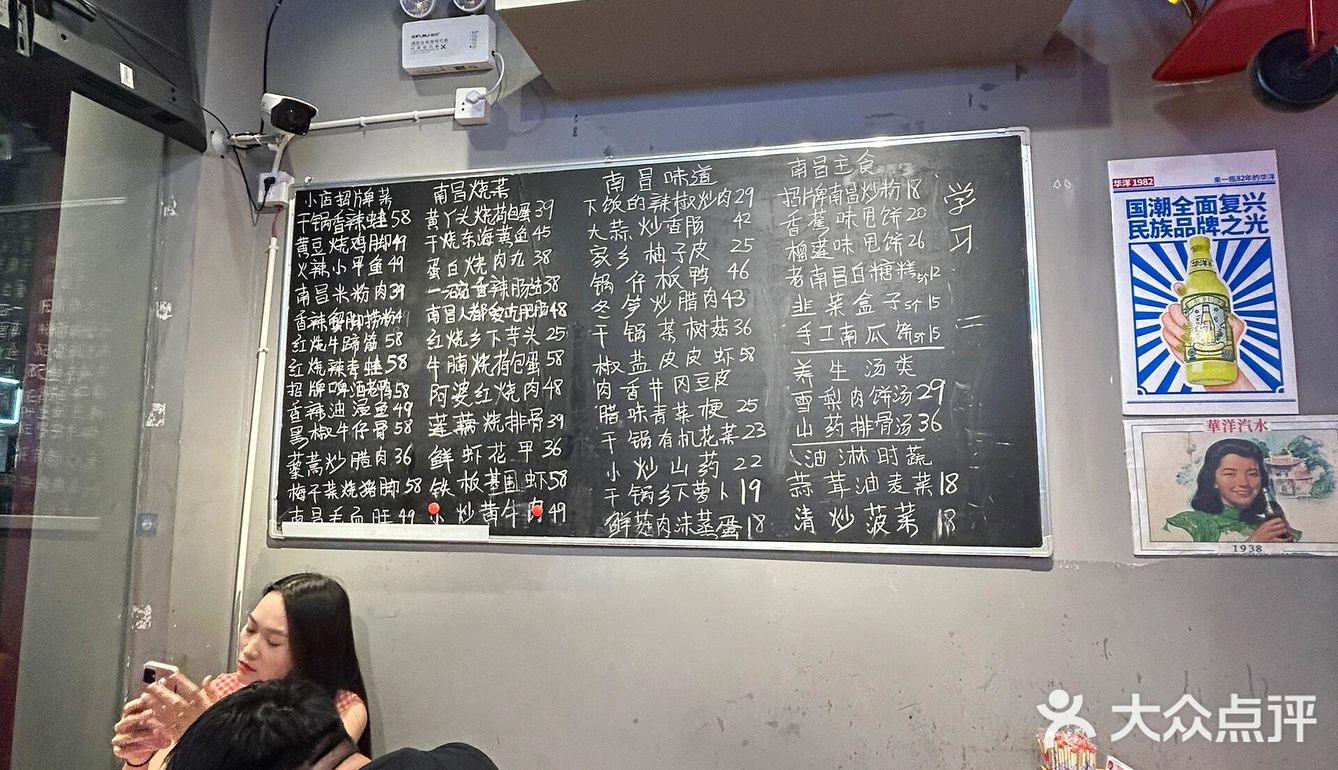 小店招牌菜
干锅香辣蛙58
黄豆烧鸡脚49
火辣小平鱼49
南昌米粉肉39
香辣蟹脚捞粉
红烧牛蹄筋58
红烧辣青蛙58
招牌啤酒老鸭58
香辣油浸鱼49
黑椒牛仔骨58
藜蒿炒腊肉36
梅干菜烧猪脚58
南昌毛血旺49
南昌烧菜
黄丫头烧荷包蛋39
干烧东海黄鱼45
蛋白烧肉丸38
一碗香辣肠38
南昌人都爱吃肥肠48
红烧乡下芋头25
牛腩烧荷包蛋58
阿婆红烧肉48
莲藕烧排骨39
鲜虾花甲36
铁板基围虾58
小炒黄牛肉49
南昌味道
下饭的辣椒炒肉29
大蒜炒香肠 42
家乡柚子皮 25
锅仔板鸭 46
冬笋炒腊肉43
干锅茶树菇36
椒盐皮皮虾58
肉香井冈豆皮
腊味青菜梗25
干锅有机花菜23
小炒山药 22
干锅乡下萝卜19
鲜菇肉沫蒸蛋18
南昌主食
招牌南昌炒粉18
香蕉味甩饼20
榴莲味甩饼26
老南昌白糖糕5个12
韭菜盒子5个15
手工南瓜饼5个15
养生汤类
雪梨肉饼汤29
山药排骨汤36
油淋时蔬
蒜茸油麦菜18
清炒菠菜18
学
习
华洋1982
来一瓶82年的华洋
国潮全面复兴
民族品牌之光
華洋汽水
1938
大众点评